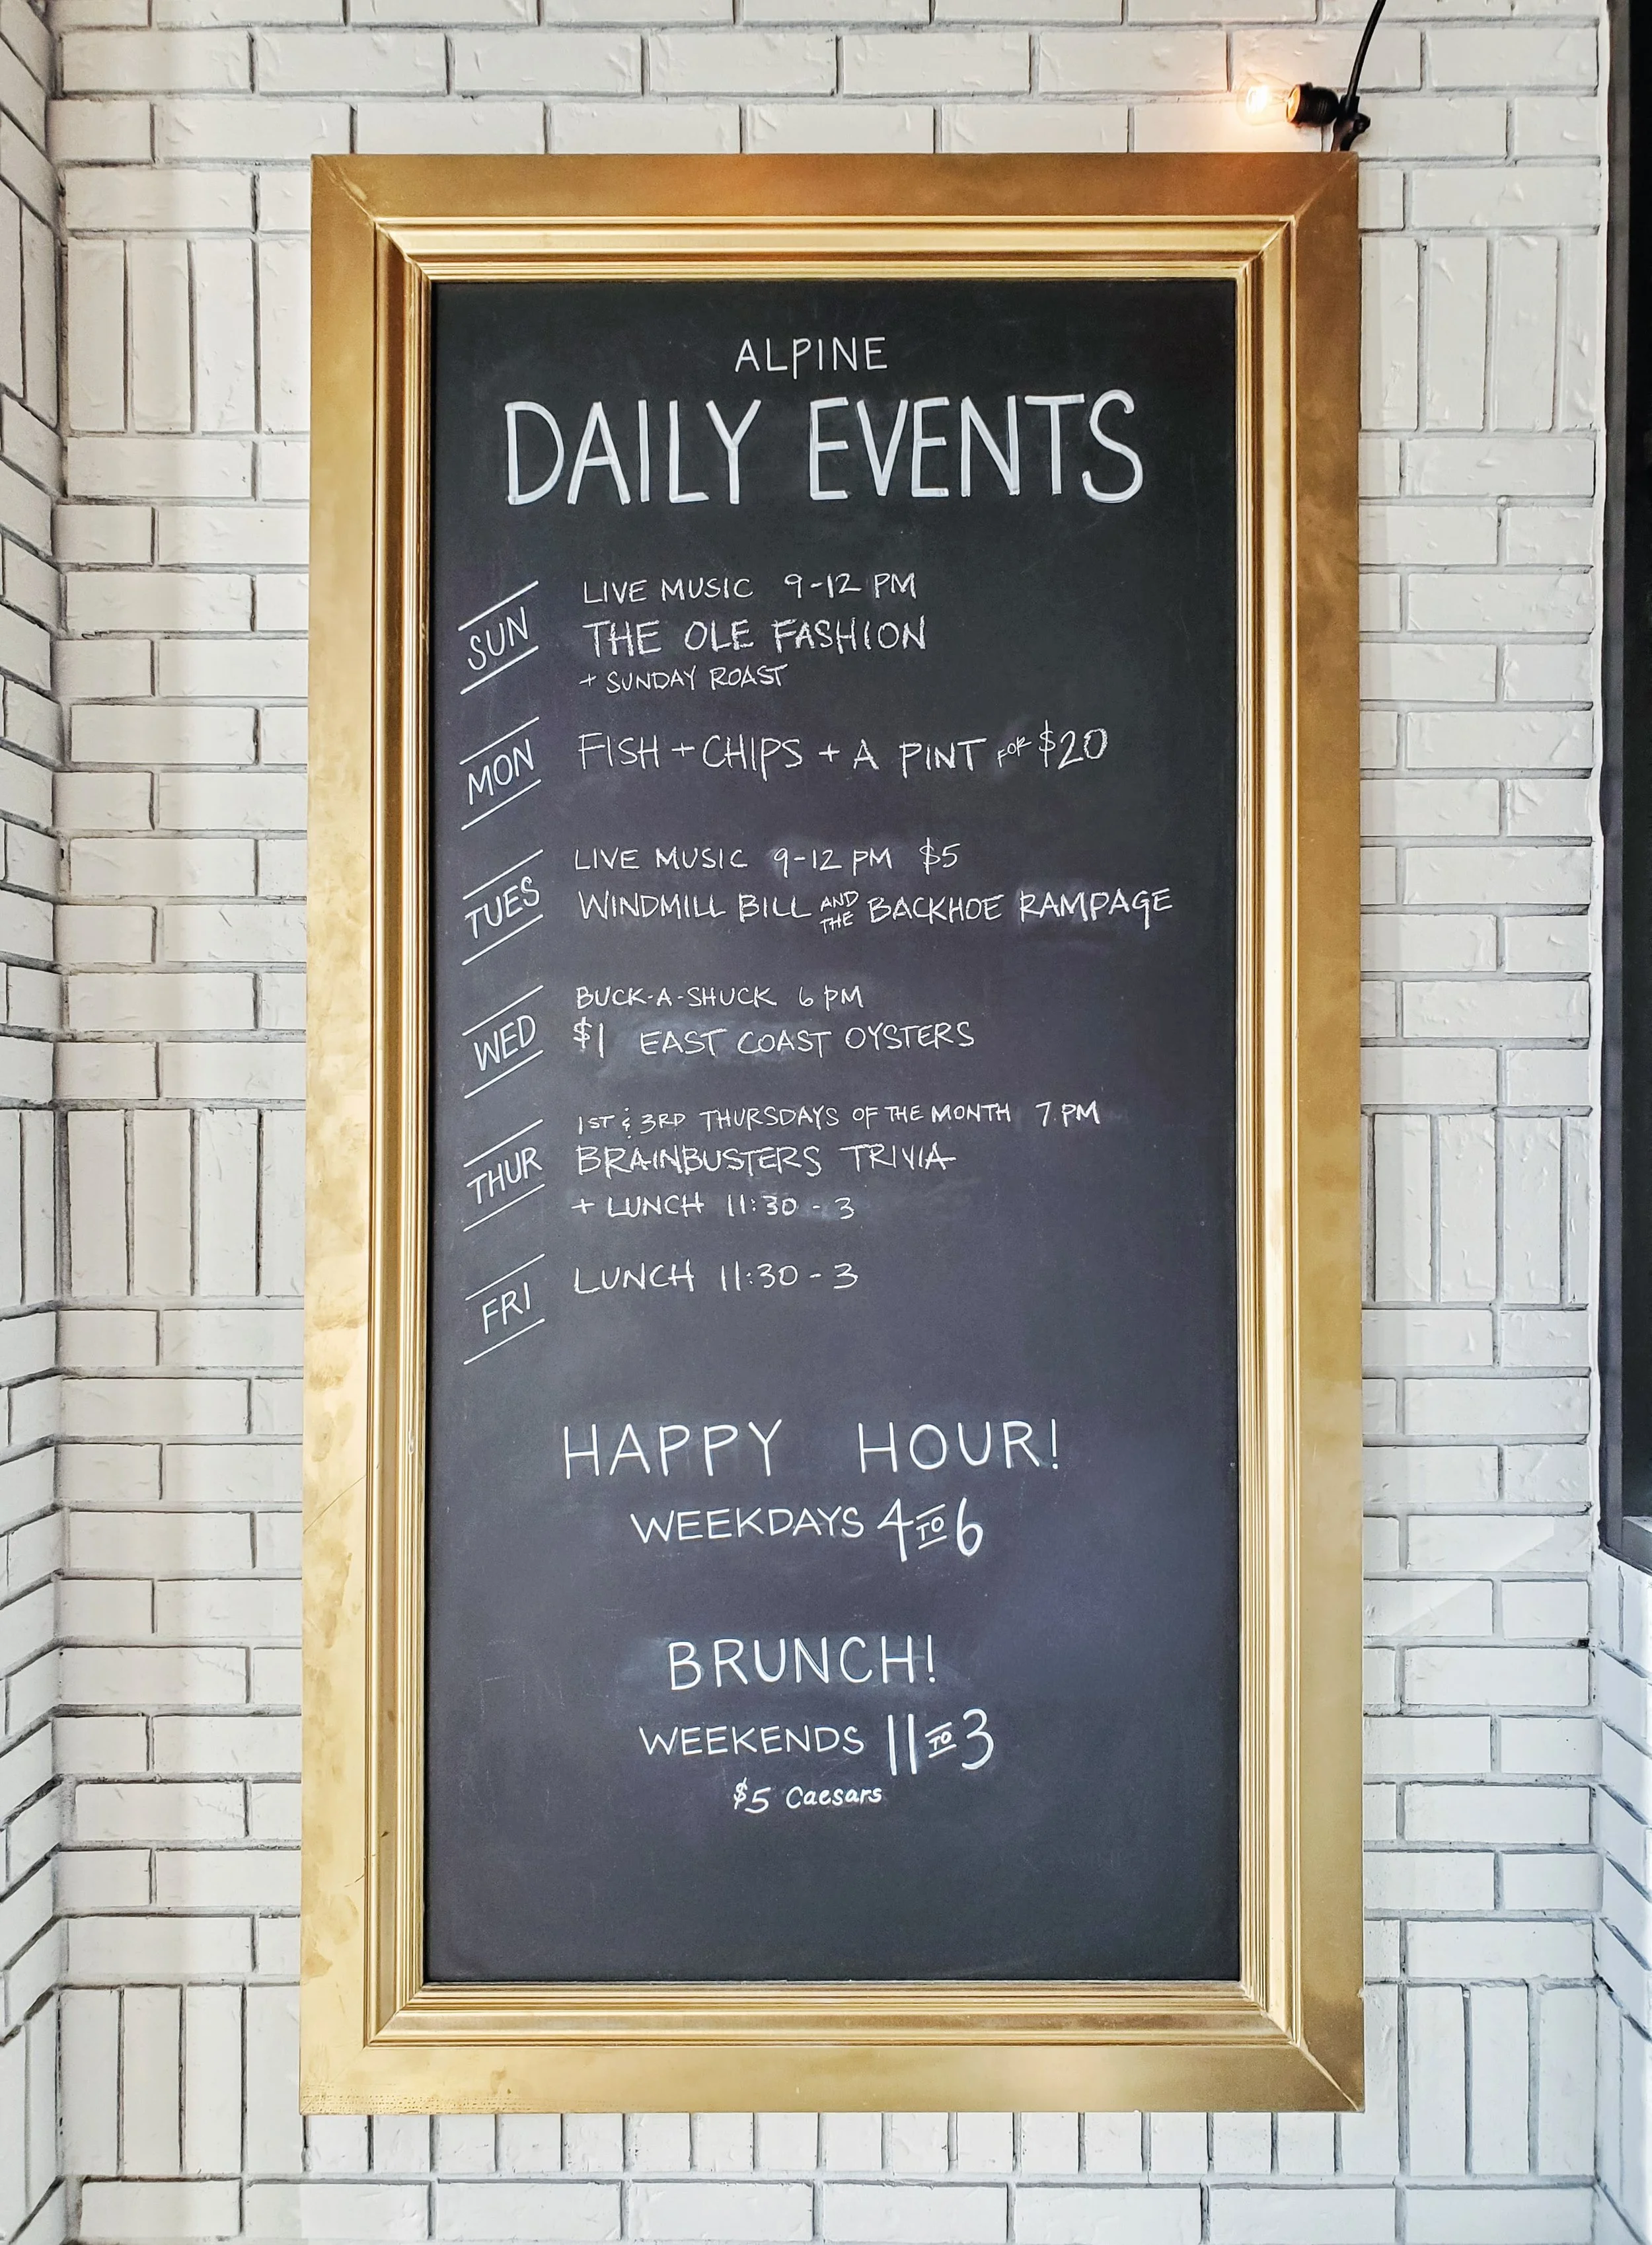 ALPINE
DAILY EVENTS
SUN
LIVE MUSIC 9-12 PM
THE OLE FASHION
+ SUNDAY ROAST
MON
FISH + CHIPS + A PINT FOR $20
TUES
LIVE MUSIC 9-12 PM $5
WINDMILL BILL AND THE BACKHOE RAMPAGE
WED
BUCK-A-SHUCK 6 PM
$1 EAST COAST OYSTERS
THUR
1ST & 3RD THURSDAYS OF THE MONTH 7 PM
BRAINBUSTERS TRIVIA
+ LUNCH 11:30 - 3
FRI
LUNCH 11:30 - 3
HAPPY HOUR!
WEEKDAYS 4 TO 6
BRUNCH!
WEEKENDS 11 TO 3
$5 Caesars